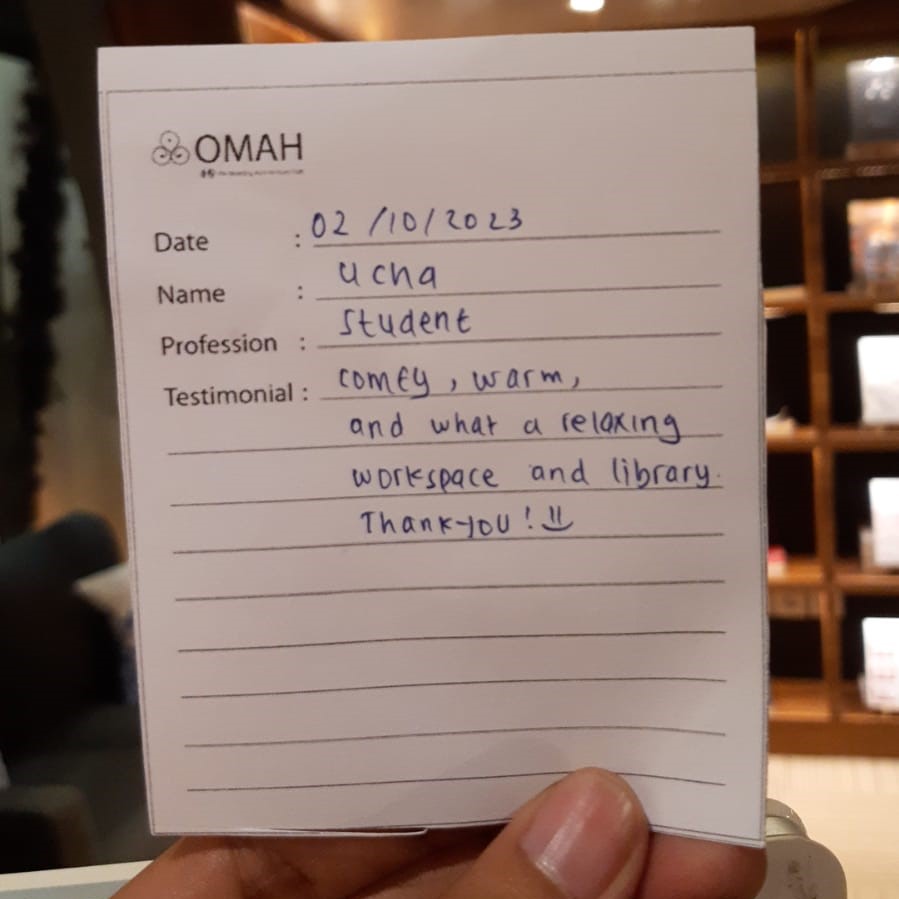 OMAH
Date : 02/10/2023
Name : ucha
Profession : Student
Testimonial : comfy, warm,
and what a relaxing
workspace and library.
Thank-you! =)